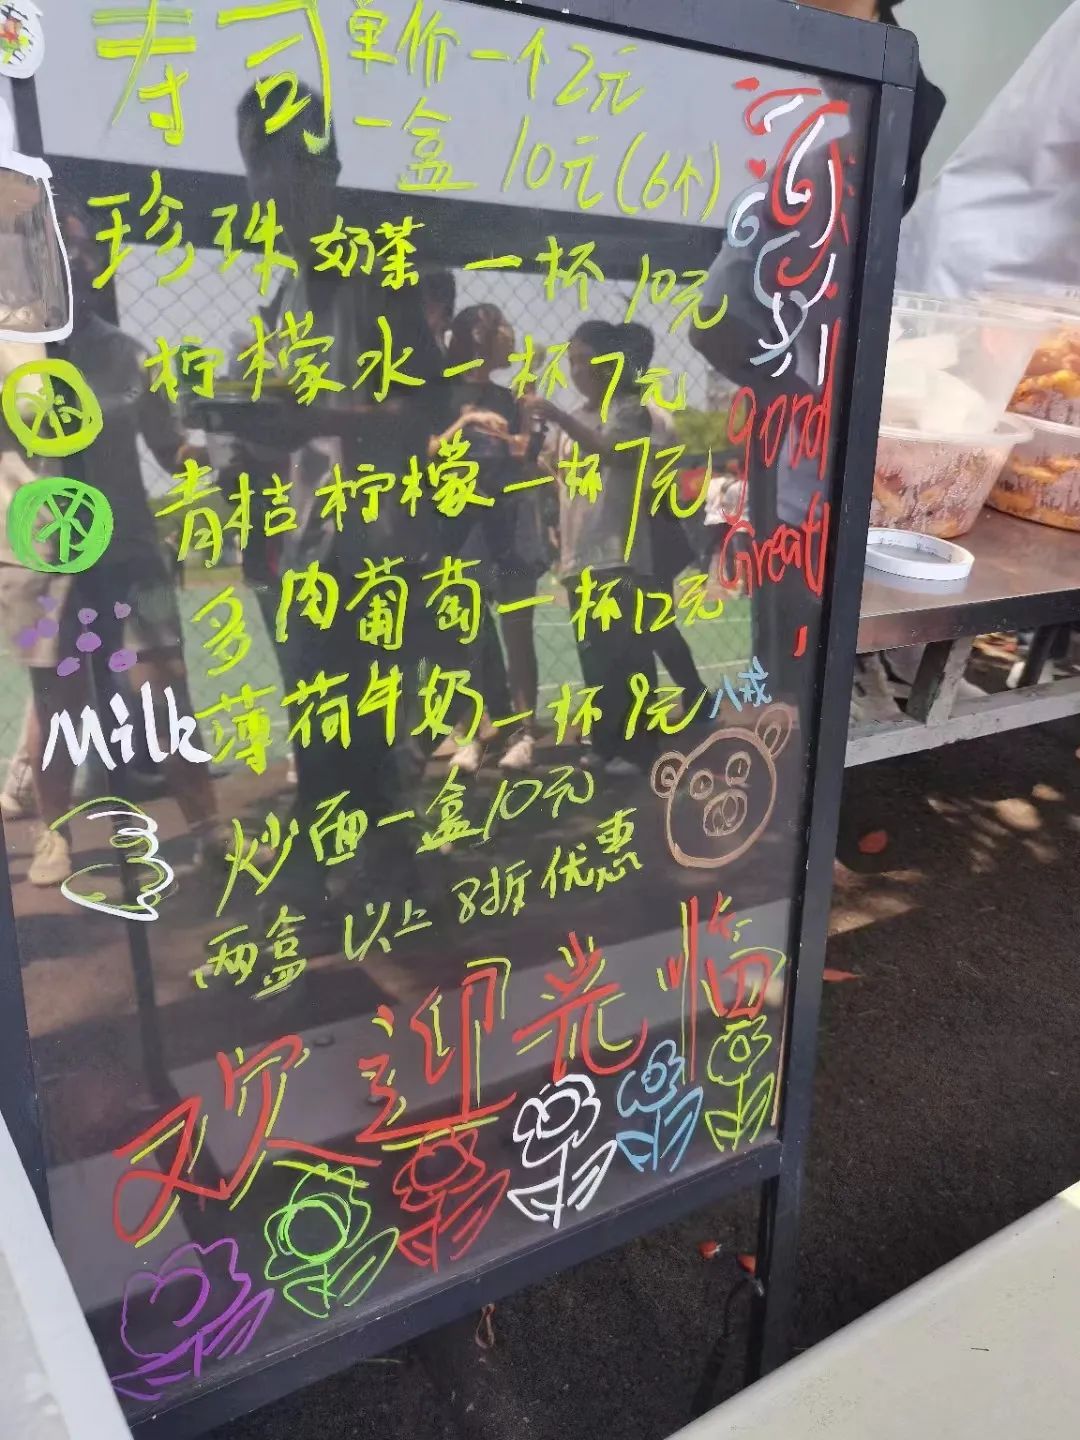 寿司 单价一个2元
一盒 10元(6个)
珍珠奶茶 一杯 10元
柠檬水一杯7元
青桔柠檬一杯7元
多肉葡萄一杯12元
Milk 薄荷牛奶一杯9元
炒面一盒10元
两盒以上 8折优惠
欢迎光临
good
Great!